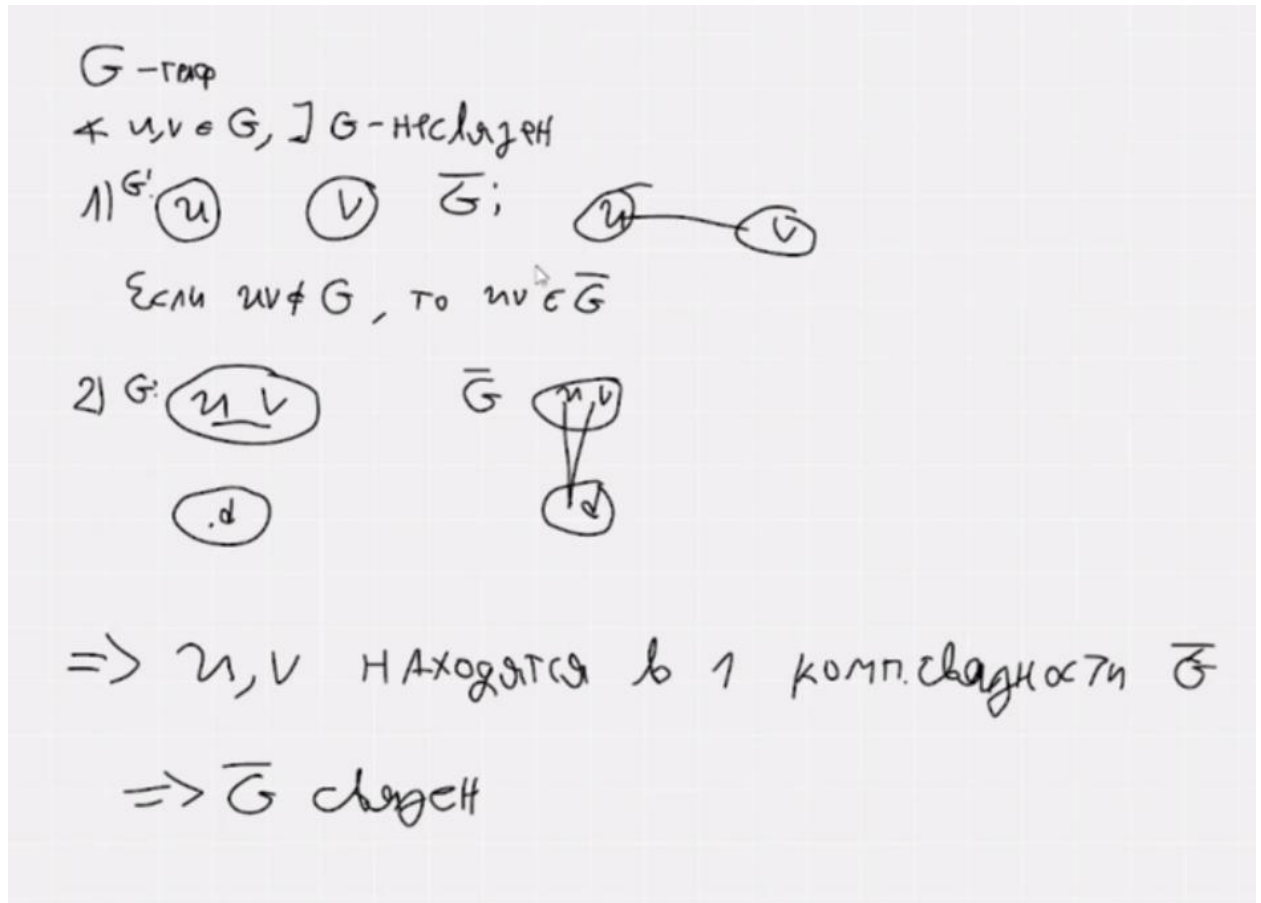 G - граф
∢ u,v ∈ G, ] G - несвязен
1) G: u v G̅; u v
Если uv ∉ G, то uv ∈ G̅
2) G: u v G̅ u,v
.d d
=> u,v находятся в 1 комп. связности G̅
=> G̅ связен